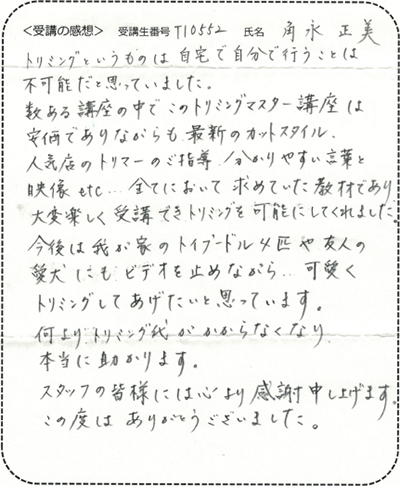 <受講の感想> 受講生番号 T10552 氏名 角永 正美
トリミングというものは自宅で自分で行うことは
不可能だと思っていました。
数ある講座の中でこのトリミングマスター講座は
安価でありながらも最新のカットスタイル、
人気店のトリマーのご指導、分かりやすい言葉と
映像etc… 全てにおいて求めていた教材であり
大変楽しく受講できトリミングを可能にしてくれました。
今後は我が家のトイプードル4匹や友人の
愛犬にもビデオを止めながら… 可愛く
トリミングしてあげたいと思っています。
何よりトリミング代がかからなくなり
本当に助かります。
スタッフの皆様には心より感謝申し上げます。
この度はありがとうございました。